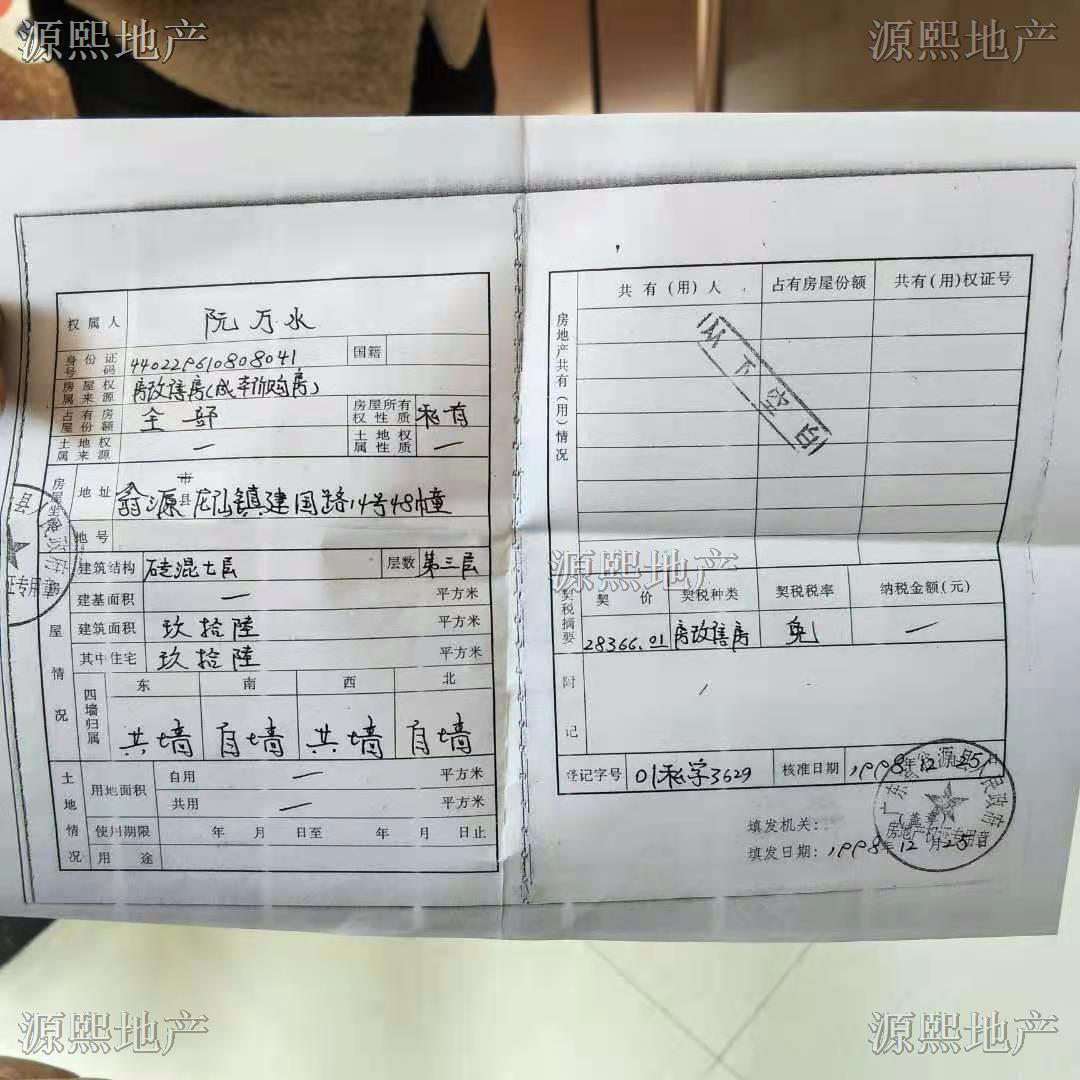 源熙地产
源熙地产
权属人 阮万水
身份证号码 440229610808041 国籍
房屋权属来源 房改售房(成本价购房)
占有房屋份额 全部 房屋所有权性质 私有
土地权属来源 一 土地权属性质 一
房屋坐落 地址 翁源市县龙仙镇建国路14号48幢
地号
房屋情况
建筑结构 砼混七层 层数 第三层
建基面积 一 平方米
建筑面积 玖拾陆 平方米
其中住宅 玖拾陆 平方米
四墙归属 东 南 西 北
共墙 自墙 共墙 自墙
土地情况 用地面积 自用 一 平方米
共用 一 平方米
使用期限 年 月 日至 年 月 日止
用途
房地产共有(用)情况 共有(用)人 占有房屋份额 共有(用)权证号
以下空白
源熙地产
契税摘要 契价 契税种类 契税税率 纳税金额(元)
28366.01 房改售房 免 一
附记
登记字号 01私字3629 核准日期 1998年12.25
填发机关:
(盖章)
填发日期:1998年12月25
广东省翁源县人民政府
房地产权证专用章
源熙地产
源熙地产